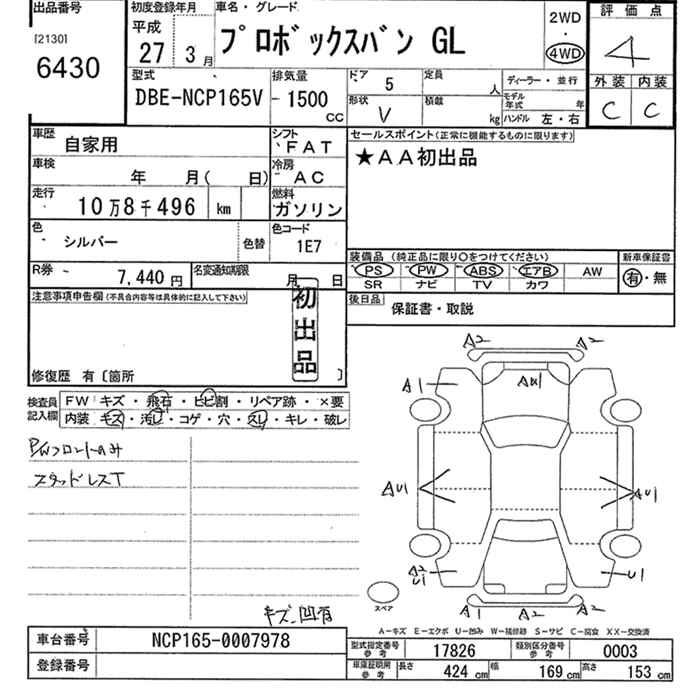 出品番号
[2130]
6430
初度登録年月
平成
27 3月
車名・グレード
プロボックスバン GL
2WD
・
4WD
評価点
4
型式
DBE-NCP165V
排気量
1500
CC
ドア 5
定員 人
ディーラー・並行
モデル年式 年
形状 V
積載 kg
ハンドル 左・右
外装 内装
C C
車歴
自家用
シフト
FAT
セールスポイント(正常に機能するものに限ります)
★AA初出品
車検
年 月( 日)
冷房
AC
走行
10万8千496 km
燃料
ガソリン
色
シルバー
色替
色コード
1E7
装備品(純正品に限り○をつけてください)
PS PW ABS エアB AW
SR ナビ TV カワ
新車保証書
有・無
R券
7,440円
名変通知期限
月 日
後日品
保証書・取説
注意事項申告欄(不具合内容等は具体的に記入して下さい)
初出品
修復歴 有〔箇所 〕
検査員記入欄
FW キズ・飛石・ヒビ割・リペア跡・×要
内装 キズ・汚レ・コゲ・穴・スレ・キレ・破レ
P/Wフロントのみ
スタッドレスT
キズ、凹有
A2 A2
A1
AU1
AU1
AU1
A2
U1
U1
A1 A2 A2
スペア
A-キズ E-エクボ U-凹み W-補修跡 S-サビ C-腐食 XX-交換済
車台番号
NCP165-0007978
登録番号
型式指定番号
参考
17826
類別区分番号
参考
0003
車庫証明用
参考
長さ 424 cm
幅 169 cm
高さ 153 cm